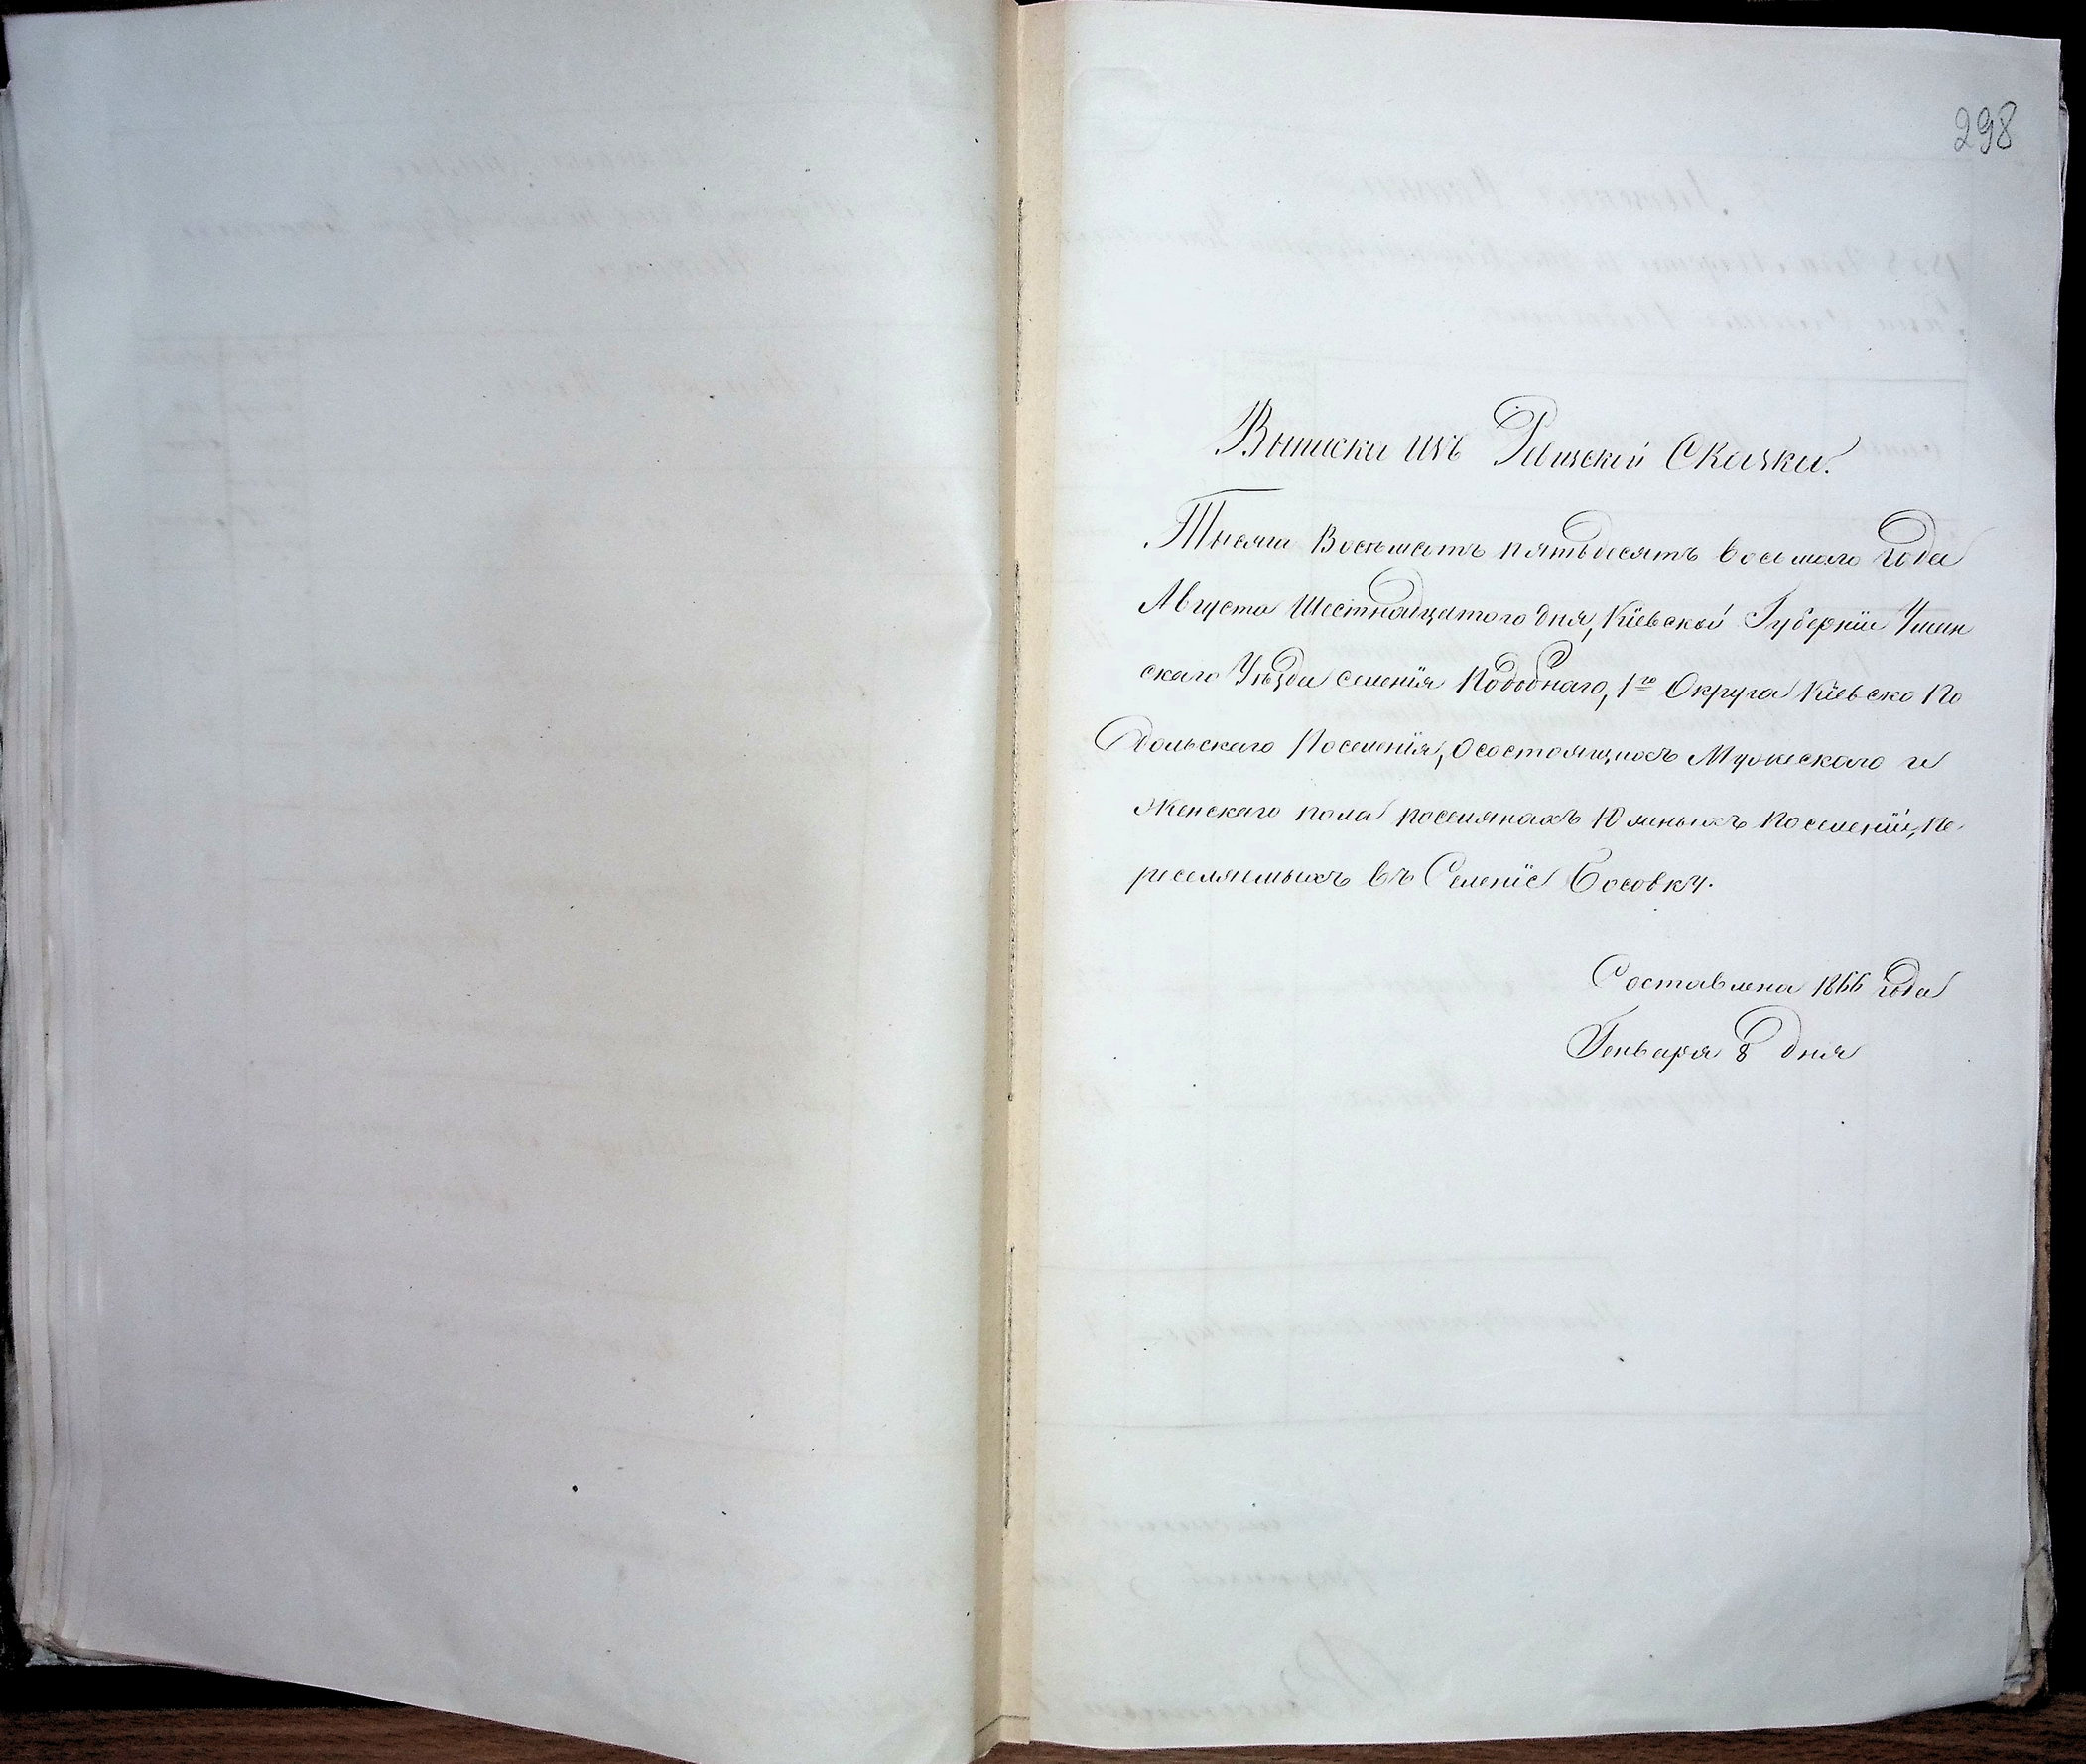 298
Выписка изъ Ревизской Сказки.
Тысяча Восемьсотъ пятьдесятъ восьмого Года
Августа Шестнадцатого дня, Кіевской Губерніи Уман
скаго Уѣзда селенія Подобнаго, 1го Округа Кіевско По
дольскаго Поселенія, о состоящихъ Мужескаго и
Женскаго пола поселянахъ Южныхъ Поселеній, Пе-
реселянныхъ въ Селеніе Босовку.
Составлена 1866 года
Генваря 8 дня